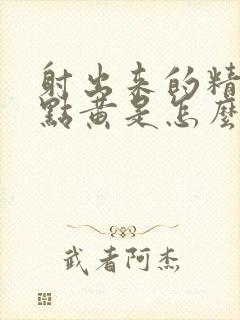 射出来的精
點黃是怎麼
武者阿杰